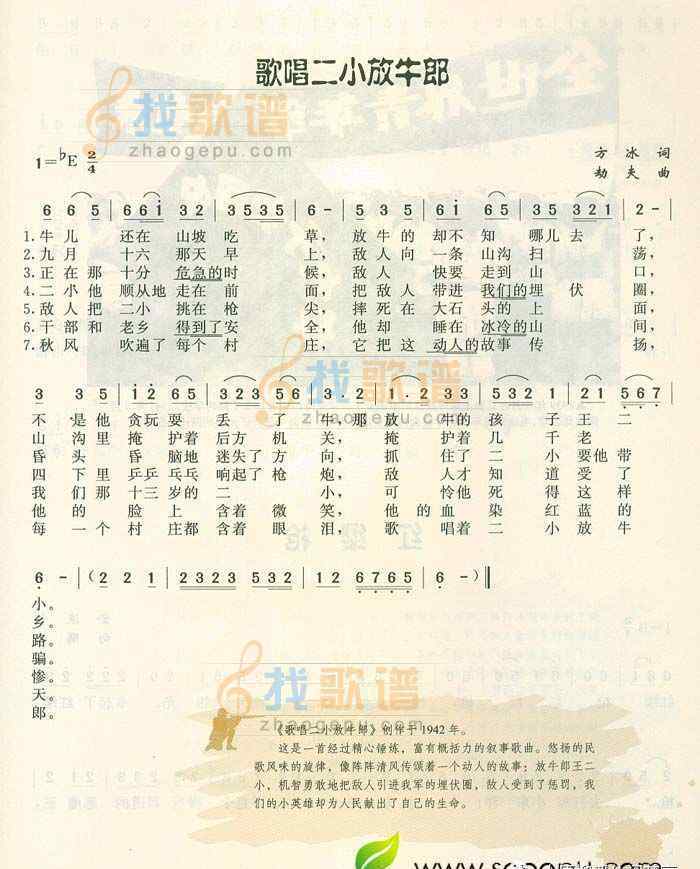 歌唱二小放牛郎
找歌谱
zhaogepu.com
1=♭E 2/4
方冰 词
劫夫 曲
6 6 5 | 6 6 i 3 2 | 3 5 3 5 | 6 - | 5 3 5 | 6 i 6 5 | 3 5 3 2 1 | 2 - |
1.牛儿 还在 山坡 吃 草, 放牛的 却不 知 哪儿去 了,
2.九月 十六 那天 早 上, 敌人 向 一条 山沟 扫 荡,
3.正在那 十分 危急的时 候, 敌人 快要 走到 山 口,
4.二小他 顺从地 走在 前 面, 把敌人 带进 我们的埋 伏 圈,
5.敌人把 二小 挑在 枪 尖, 摔死在 大石 头的 上 面,
6.干部和 老乡 得到了安 全, 他却 睡在 冰冷的山 间,
7.秋风 吹遍了 每个 村 庄, 它把这 动人的 故事 传 扬,
3 3 5 | i 2 6 5 | 3 2 3 5 6 | 3 . 2 | 1 . 2 3 3 | 5 3 2 | 1 2 1 | 5 6 7 |
不 是他 贪玩 耍 丢 了 牛, 那 放 牛的 孩 子 王 二
山 沟里 掩 护着 后方 机 关, 掩 护着 几 千 老
昏 头 昏 脑地 迷失了 方 向, 抓 住了 二 小 要他 带
四 下里 乒乒 乓乓 响起了 枪 炮, 敌 人才 知 道 受了
我 们那 十三 岁的 二 小, 可 怜他 死 得 这样
他 的 脸 上 含着 微 笑, 他 的血 染 红 蓝的
每 一个 村 庄都 含着 眼 泪, 歌 唱着 二 小 放 牛
6 - | (2 2 1 | 2 3 2 3 | 5 3 2 | 1 2 | 6 7 6 5 | 6 - ) ‖
小。
乡。
路。
骗。
惨。
天。
郎。
找歌谱
zhaogepu.com
找歌谱
《歌唱二小放牛郎》创作于1942年。
这是一首经过精心锤炼,富有概括力的叙事歌曲。悠扬的民
歌风味的旋律,像阵阵清风传颂着一个动人的故事:放牛郎王二
小,机智勇敢地把敌人引进我军的埋伏圈,敌人受到了惩罚,我
们的小英雄却为人民献出了自己的生命。